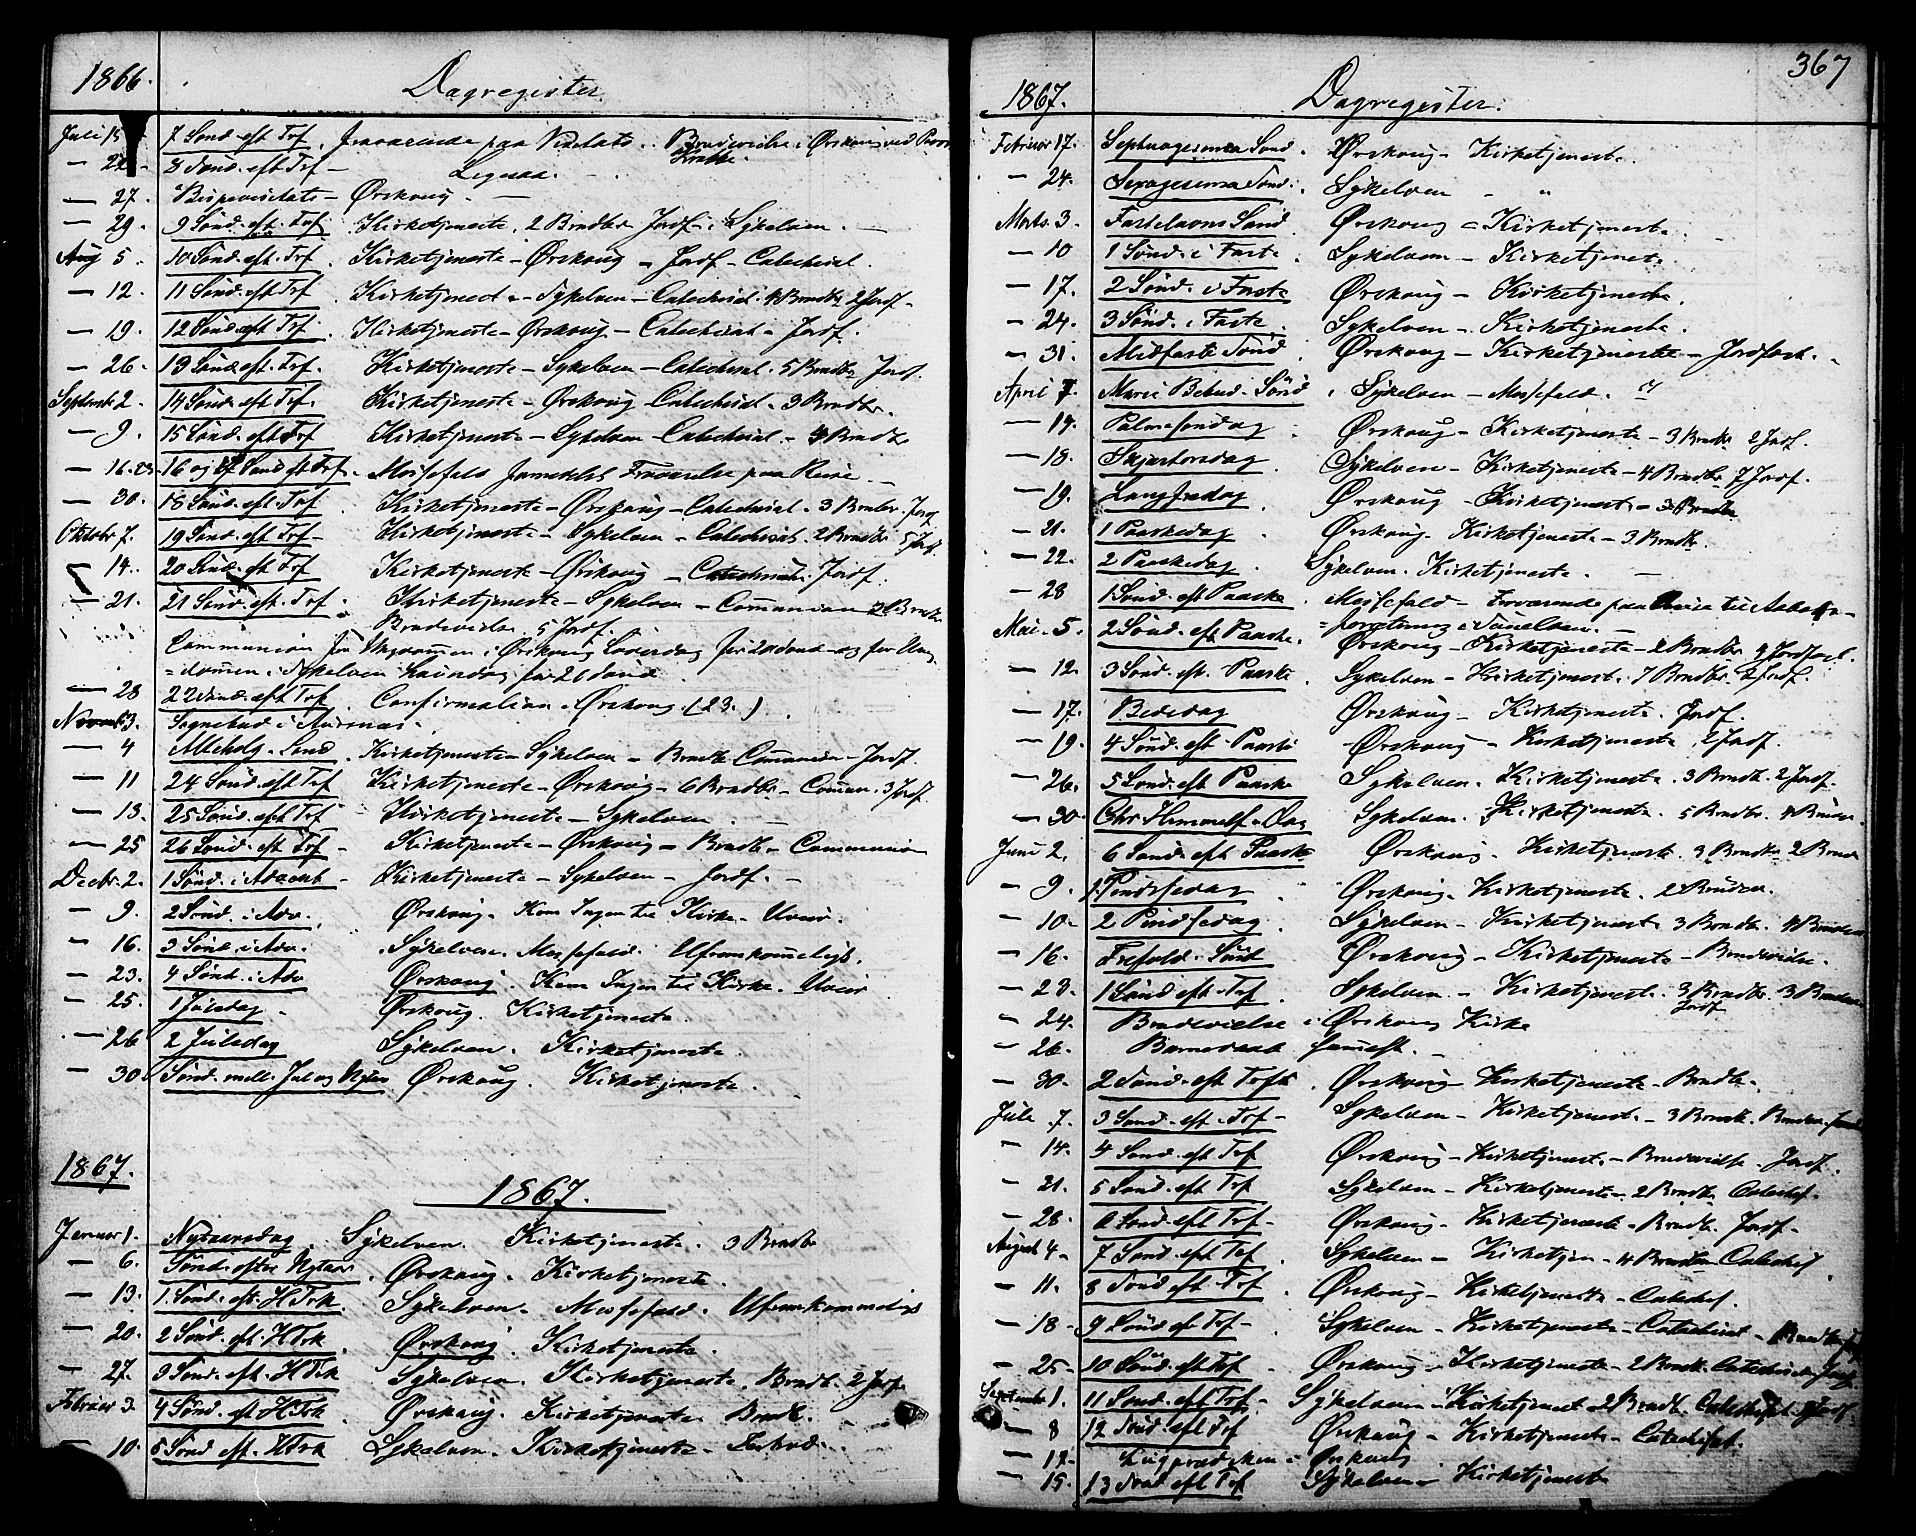 1866. Dagregister
Juli 15 7 Sönd. eft Trf. Fraværende paa Visitats. Brudevielse i Ørskoug ved
— 22 8 Sönd. eft Trf —
— 27. Bispevisitats — Ørskoug. —
— 29. 9 Sönd. eft. Trf Kirketjeneste, 2 Brndbr Jordf. i Sykelven. —
Aug 5. 10 Sönd. eft. Trf. Kirketjeneste — Ørskoug — Jordf — Catechisat.
— 12. 11 Sönd. eft Trf Kirketjeneste — Sykelven — Catechisat. 4 Brndbr 2 Jordf —
— 19. 12 Sönd. eft Trf. Kirketjeneste — Ørskoug — Catechisat — Jordf.
— 26. 13 Sönd. eft. Trf. Kirketjeneste — Sykelven — Catechisat. 5 Brndbr Jordf.
Septembr. 2. 14 Sönd. eft Trf. Kirketjeneste — Ørskoug — Catechisat. 3 Brndbr.
— 9. 15 Sönd. eft Trf Kirketjeneste — Sykelven — Catechisat. — 4 Brndbr
— 16-23. 16 og 17 Sönd eft Trf. Messefald formedelst Fraværelse paa Reise. —
— 30. 18 Sönd. eft Trf Kirketjeneste — Ørskoug — Catechisat. 3 Brnbr. Jordf
Oktobr 7. 19 Sönd. eft Trf — Kirketjeneste — Sykelven — Catechisat. 2 Brndbr 5 Jordf
— 14. 20 Sönd. eft Trf Kirketjeneste — Ørskoug — Catechisat. Jordf.
— 21. 21 Sönd. eft. Trf. Kirketjeneste — Sykelven — Communion 2 Brndbr
Brudevielse 5 Jordf.
Communion for Ungdommen i Ørskoug Löverdag för 22 Sönd — og for Ung
=dommen i Sykelven Löverdag för 26 Sönd.
— 28 22 Sönd. eft Trf. Confirmation i Ørskoug. (23.)
Novembr 3. Sognebud i
— 4 Allehelg. Sönd Kirketjeneste — Sykelven — Brndbr Communion — Jordf.
— 11 24 Sönd. eft Trf Kirketjeneste — Ørskoug — 6 Brndbr — Commun. 3 Jordf.
— 13. 25 Sönd. eft Trf Kirketjeneste — Sykelven. —
— 25 26 Sönd. eft Trf — Kirketjeneste — Ørskoug — Brndbr — Communion
Decbr. 2. 1 Sönd. i Advent — Kirketjeneste — Sykelven — Jordf. —
— 9. 2 Sönd. i Adv. Ørskoug. Kom Ingen til Kirke. Uveir.
— 16. 3 Sönd i Adv. Sykelven. Messefald. Ufremkommeligt.
— 23. 4 Sönd. i Adv Ørskoug. Kom Ingen til Kirke. Uveir
— 25. 1 Juledag. Ørskoug. Kirketjeneste.
— 26 2 Juledag Sykelven. Kirketjeneste.
— 30. Sönd. mell. Jul og Nytaar Ørskoug. Kirketjeneste.
1867. 1867.
Januar 1. Nytaarsdag. Sykelven. Kirketjeneste. 3 Brndbr
— 6. Sönd. efter Nytaar. Ørskoug. Kirketjeneste.
— 13. 1 Sönd. eft. H Trk. Sykelven. Messefald. Ufremkommeligt
— 20. 2 Sönd. eft. H Trk. Ørskoug. Kirketjeneste.
— 27. 3 Sönd. eft. H Trk Sykelven. Kirketjeneste. Brndbr. 2 Jordf.
Februar 3. 4 Sönd. eft H Trk. Ørskoug. Kirketjeneste. Brndbr.
— 10. 5 Sönd eft. H Trk Sykelven. Kirketjeneste —
367
1867. Dagregister.
Februar 17. Septuagesima Sönd. Ørskoug — Kirketjeneste.
— 24. Sexagesima Sönd. Sykelven — "
Marts 3. Fastelavns Sönd. Ørskoug — Kirketjeneste.
— 10 1 Sönd. i Faste. Sykelven — Kirketjenest.
— 17. 2 Sönd. i Faste Ørskoug — Kirketjeneste.
— 24. 3 Sönd. i Faste. Sykelven — Kirketjeneste.
— 31. Midfaste Sönd. Ørskoug — Kirketjeneste — Jordfæst. —
April 7. Marie Bebud. Sönd. Sykelven — Messefald.
— 14. Palmesöndag Ørskoug — Kirketjeneste — 3 Brndbr 2 Jordf.
— 18. Skjærtorsdag. Sykelven — Kirketjeneste — 4 Brndbr 7 Jordf.
— 19. Langfredag Ørskoug — Kirketjeneste — 3 Brndbr
— 21. 1 Paaskedag Ørskoug. Kirketjeneste — 3. Brndbr.
— 22. 2 Paaskedag. Sykelven. Kirketjeneste. —
— 28 1 Sönd. eft Paaske. Messefald — Fraværende paa Reise til
Mai. 5. 2 Sönd. eft Paaske. =forretning i
Ørskoug — Kirketjeneste — 2 Brndbr. 9 Jordfæst.
— 12. 3 Sönd. eft. Paaske Sykelven — Kirketjenest. 7 Brndbr. 2 Jordf.
— 17. Bededag Ørskoug — Kirketjeneste. Jordf.
— 19. 4 Sönd. eft Paaske Ørskoug — Kirketjeneste. 2 Jordf.
— 26. 5 Sönd. eft Paaske Sykelven. Kirketjeneste. 3 Brndbr. 2 Jordf.
— 30. Chr. Himmelf. Dag Sykelven. Kirketjeneste. 5 Brndbr. 4
Juni 2. 6 Sönd. eft Paaske Ørskoug. Kirketjeneste. 3 Brndbr 2
— 9. 1 Pindsedag Ørskoug. Kirketjeneste. 2
— 10. 2 Pindsedag. Sykelven — Kirketjenest 3 Brndbr. 4
— 16. Trefold. Sönd Ørskoug — Kirketjeneste — Brudevielse.
— 23. 1 Sönd eft. Trf. Sykelven. — Kirketjeneste. 3 Brndbr. 3
Jordf
— 24. Brudevielse i Ørskoug Kirke
— 26. Barnedaab samest. —
— 30. 2 Sönd. eft Trft. Ørskoug — Kirketjeneste — Brndbr.
Juli 7. 3 Sönd. eft. Trf — Sykelven — Kirketjeneste — 3 Brndbr.
— 14. 4 Sönd. eft Trf Ørskoug — Kirketjenest. — Brudevielse. Jordf.
— 21. 5 Sönd. eft Trf Sykelven — Kirketjeneste — 2 Brndbr Catechis.
— 28. 6 Sönd. eft Trf — Ørskoug — Kirketjeneste — Brndbr. Jordf —
August 4 — 7 Sönd. eft Trf Sykelven — Kirketjen — 4 Brndbr Catechis.
— 11. 8 Sönd eft Trf. Ørskoug — Kirketjeneste — Catechis.
— 18 — 9 Sönd eft Trf — Sykelven — Kirketjeneste — Catechisat —
— 25 — 10 Sönd. eft Trf — Ørskoug — Kirketjeneste — 2 Brndbr.
September 1. 11 Sönd. eft Trf — Sykelven — Kirketjenest 2 Brndbr. Catechisat. Jordf.
— 8 12 Sönd eft Trf Ørskoug — Kirketjeneste — Catechisat.
— 12 — Ligprædiken i Ørskoug
— 15. 13 Sönd eft Trf Sykelven — Kirketjeneste